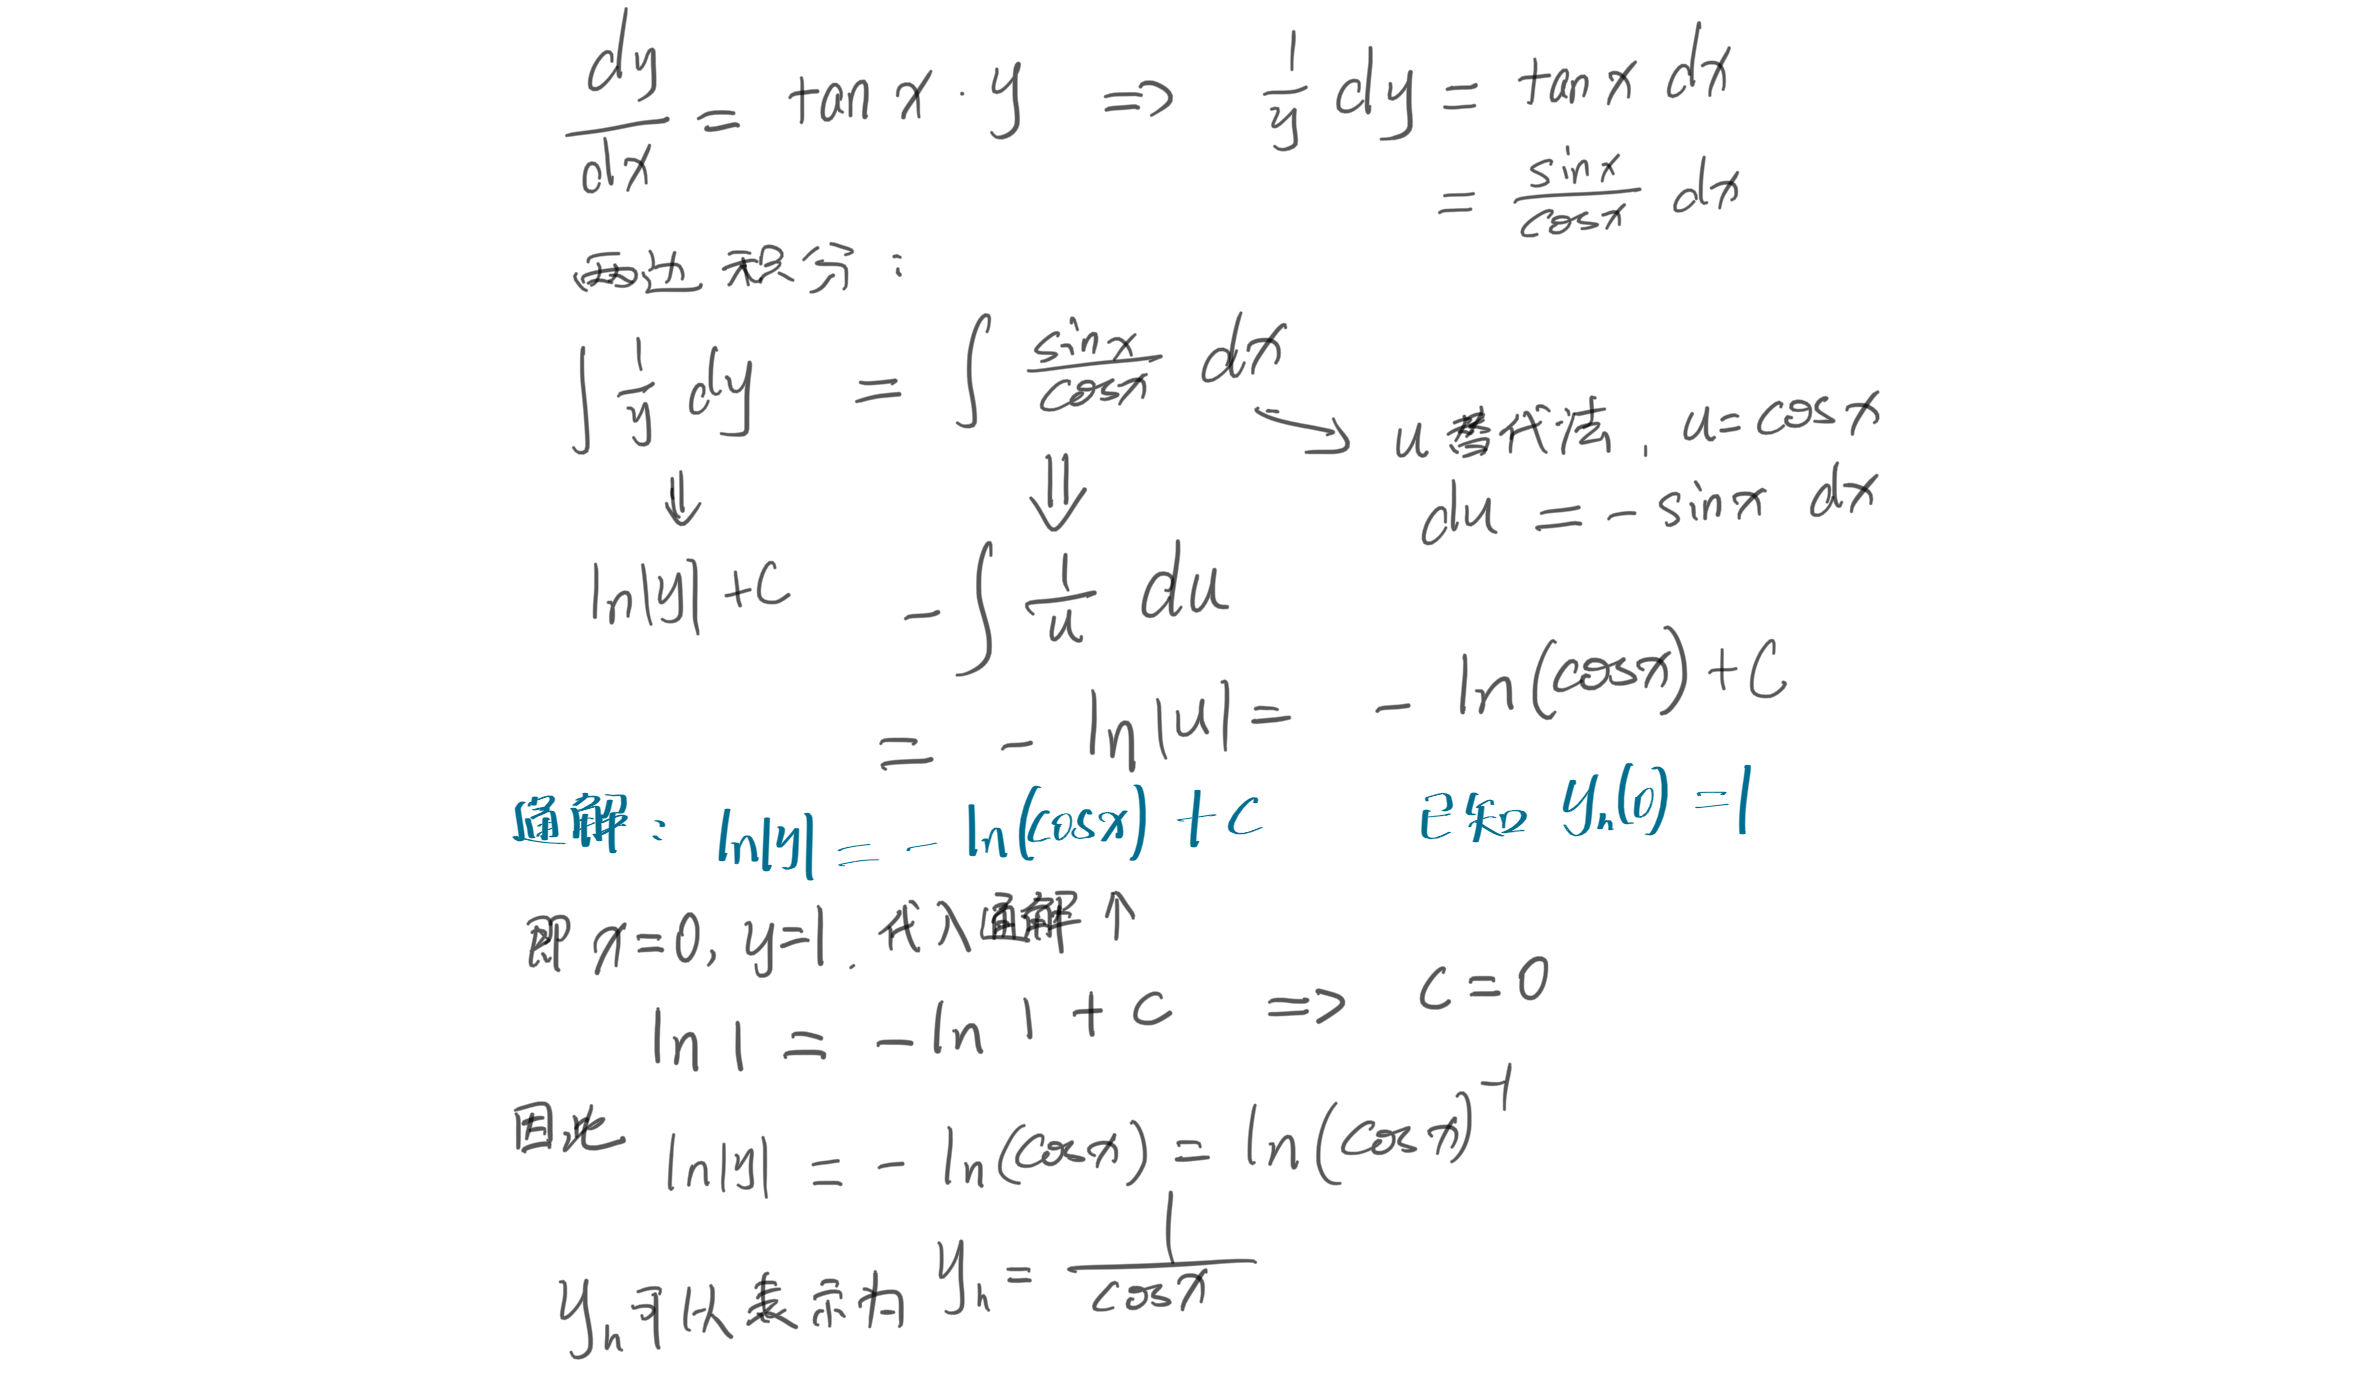 dy/dx = tan x · y ⇒ 1/y dy = tan x dx
= sin x / cos x dx
两边积分：
∫ 1/y dy = ∫ sin x / cos x dx
↘ u替代法, u = cos x
du = - sin x dx
↓ ⇓
ln|y| + C - ∫ 1/u du
= - ln|u| = - ln(cos x) + C
通解： ln|y| = - ln(cos x) + C 已知 yₕ(0) = 1
即 x=0, y=1. 代入通解↑
ln 1 = - ln 1 + C ⇒ C = 0
因此 ln|y| = - ln(cos x) = ln(cos x)⁻¹
yₕ可以表示为 yₕ = 1 / cos x